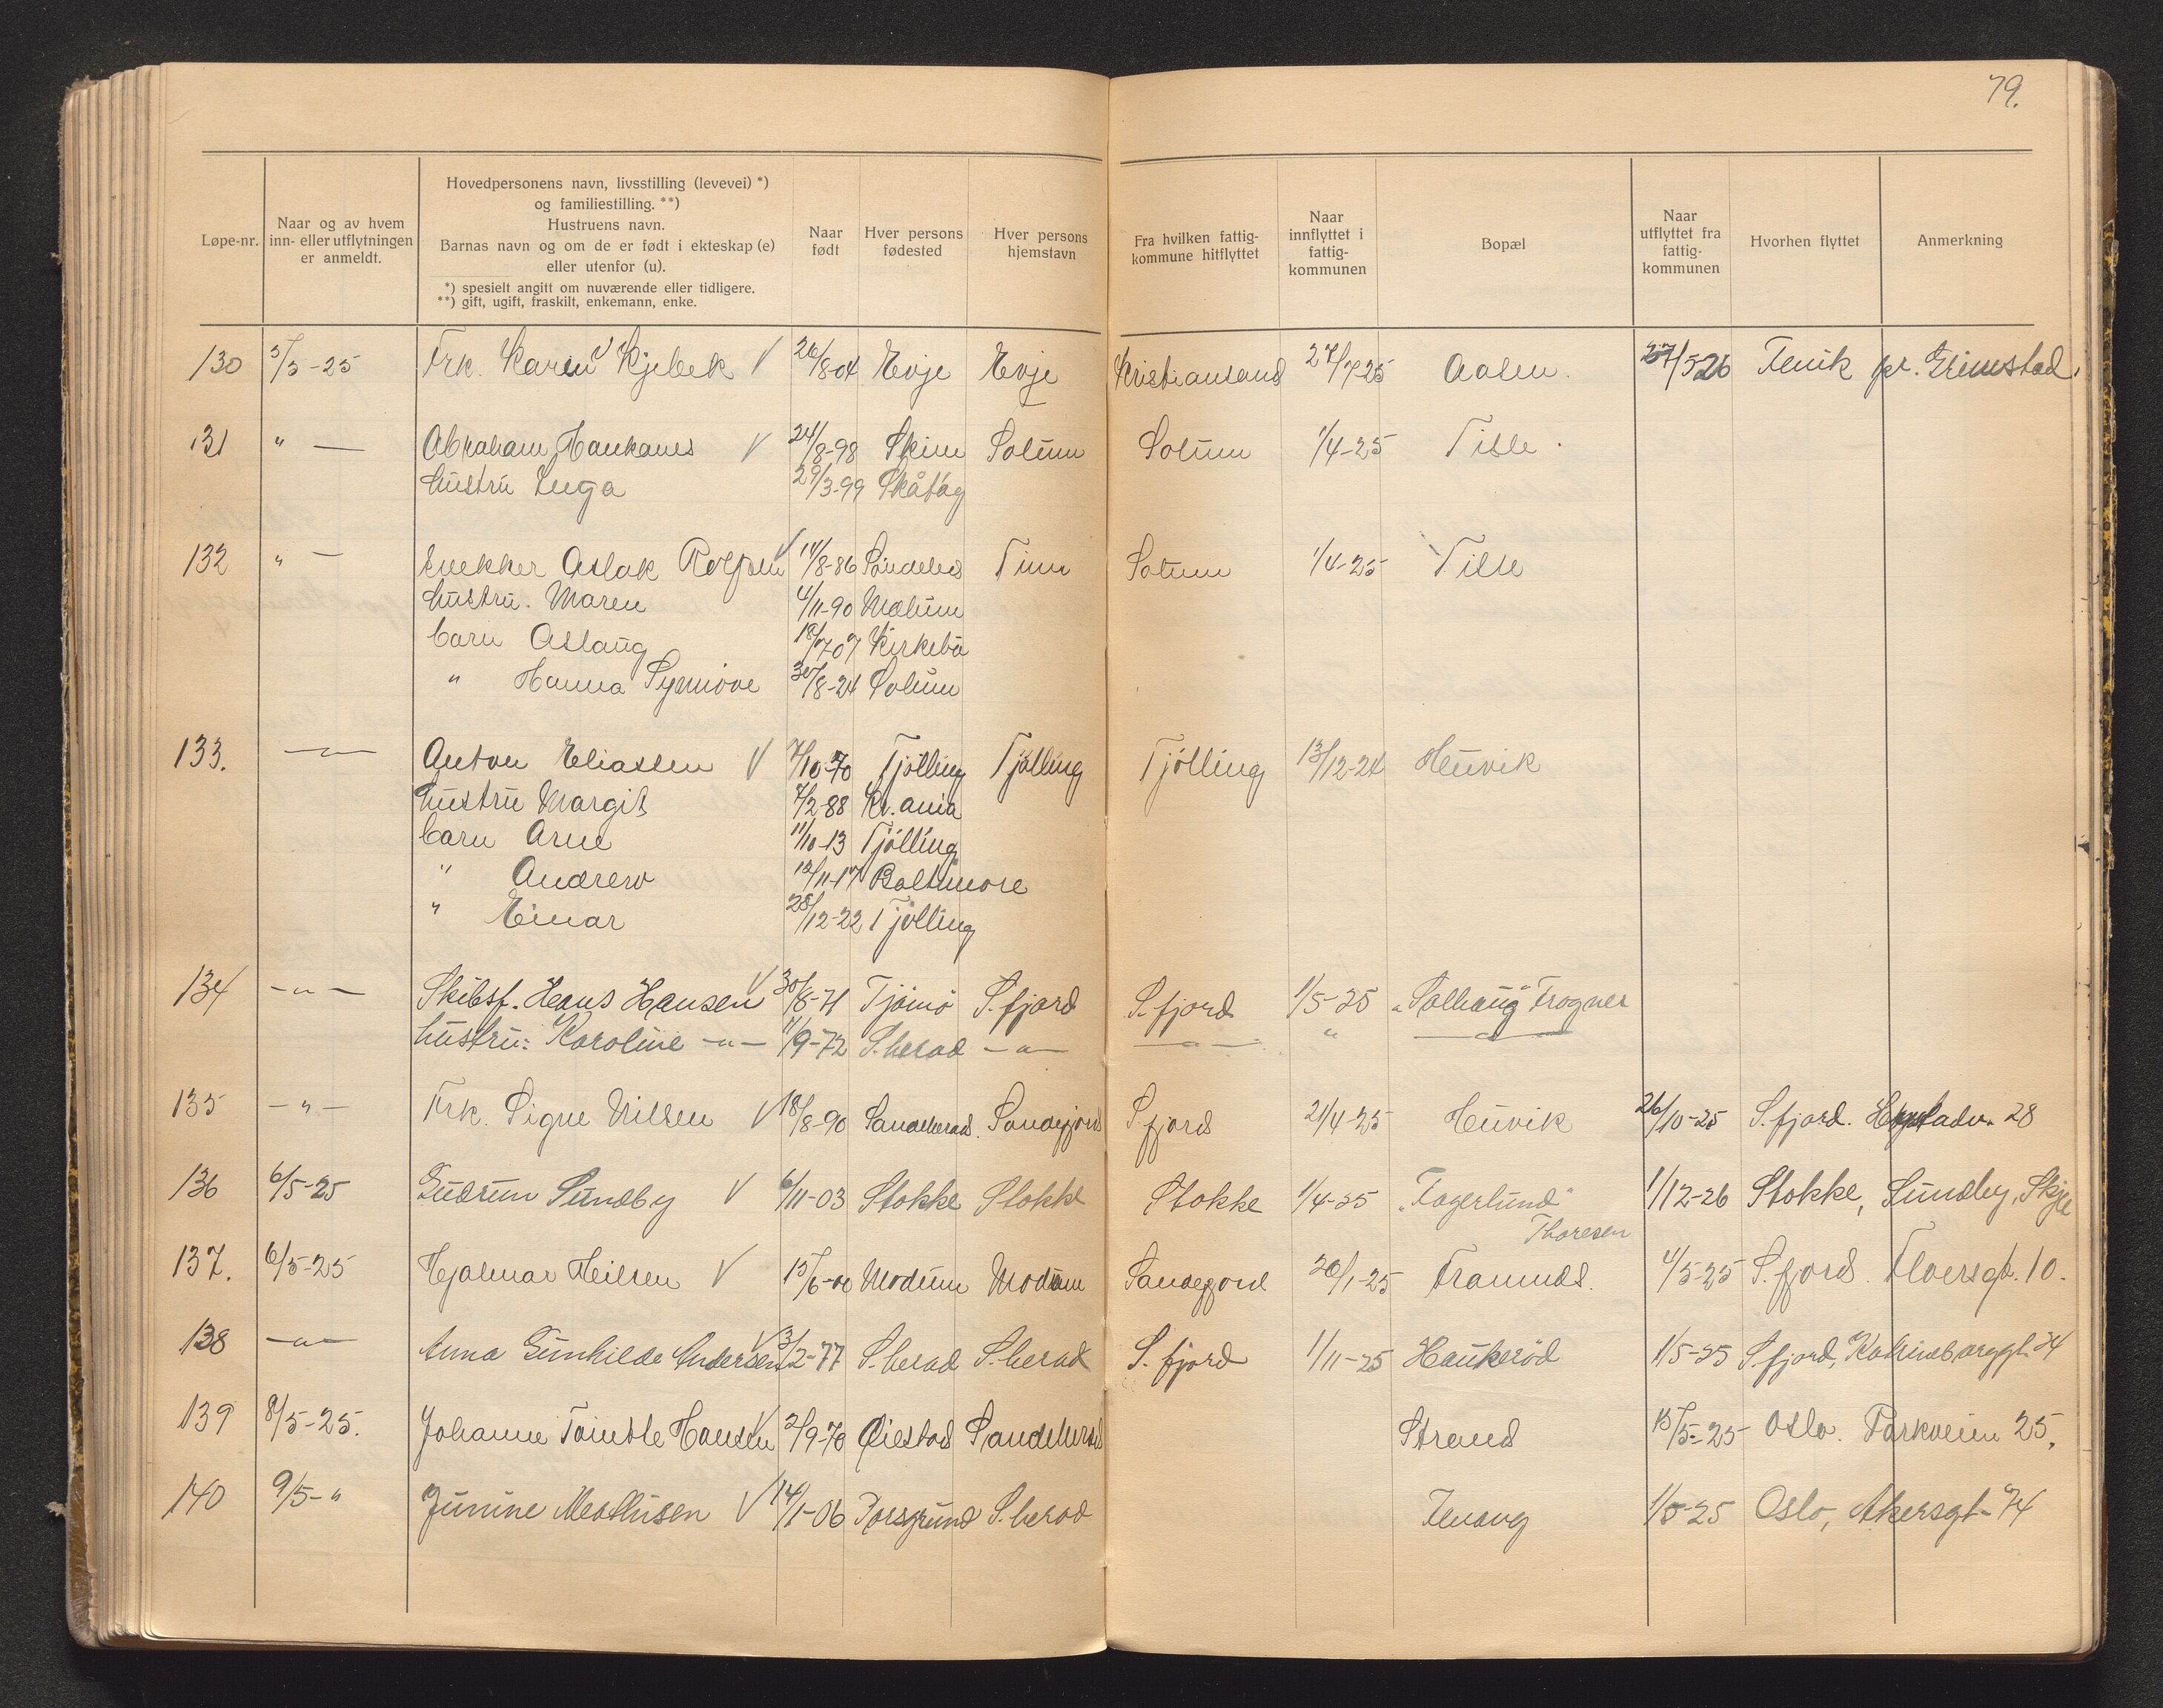 79.
Løpe-nr.
Naar og av hvem inn- eller utflytningen er anmeldt.
Hovedpersonens navn, livsstilling (levevei) *) og familiestilling. **)
Hustruens navn.
Barnas navn og om de er født i ekteskap (e) eller utenfor (u).
*) spesielt angitt om nuværende eller tidligere.
**) gift, ugift, fraskilt, enkemann, enke.
Naar født
Hver persons fødested
Hver persons hjemstavn
Fra hvilken fattig-kommune hitflyttet
Naar innflyttet i fattig-kommunen
Bopæl
Naar utflyttet fra fattig-kommunen
Hvorhen flyttet
Anmerkning
130 5/5-25 Frk. Karen Kjebek V 26/8-04 Evje Evje Kristiansand 27/7-25 Aalen. 27/5 26 Fevik pr. Grimstad.
131 " — Abraham Haukanes V 24/8-98 Skien Solum Solum 1/4-25
hustru Inga 29/3-99 Skåtøy
132 " — Aslak V 14/8-86 Søndeled Tinn Solum 1/4-25
hustru. Maren 4/11-90 Mælum
barn Aslaug 18/7 07 Kirkebø
" Hanna Synnøve 30/8-24 Solum
133. — " — Anton Eliassen V 7/10-70 Tjølling Tjølling Tjølling 13/12-24 Heuvik
hustru Margit 7/2-88 Kr.ania
barn Arne 11/10-13 Tjølling
" Andrew 12/11-17 Baltimore
" Einar 28/12-22 Tjølling
134 - " - Skibsf. Hans Hansen V 30/8-71 Tjømø S.fjord S.fjord 1/5-25 "Solhaug" Frogner
hustru: Karoline - " - 11/9-72 S.herad - " - - " - " - " -
135 - " - Frk. Signe Nilsen V 18/8-90 Sandeherad. Sandefjord S fjord 21/4-25 Heuvik 26/10-25 S. fjord. 28
136 6/5-25 Gudrun Sundby V 6/11-03 Stokke Stokke Stokke 1/4-25 "Fagerlund" 1/12-26 Stokke, Sundby, Skjee
Thoresen
137. 6/5-25 Hjalmar Heilsen V 15/6-00 Modum Modum Sandefjord 20/1-25 Framnæs. 4/5-25 S. fjord. 10.
138 - " - Anna Gunhilde Andersen V 3/2-77 S.herad S.herad S. fjord 1/11-25 Haukerød 1/5-25 S. fjord,
139 8/5-25. Johanne Hansen V 2/9-70 Øiestad Sandeherad Strand 15/5-25 Oslo. Parkveien 25.
140 9/5- " Junine Mathisen V 14/1-06 Porsgrund S.herad 1/5-25 Oslo, Akersgt- 74